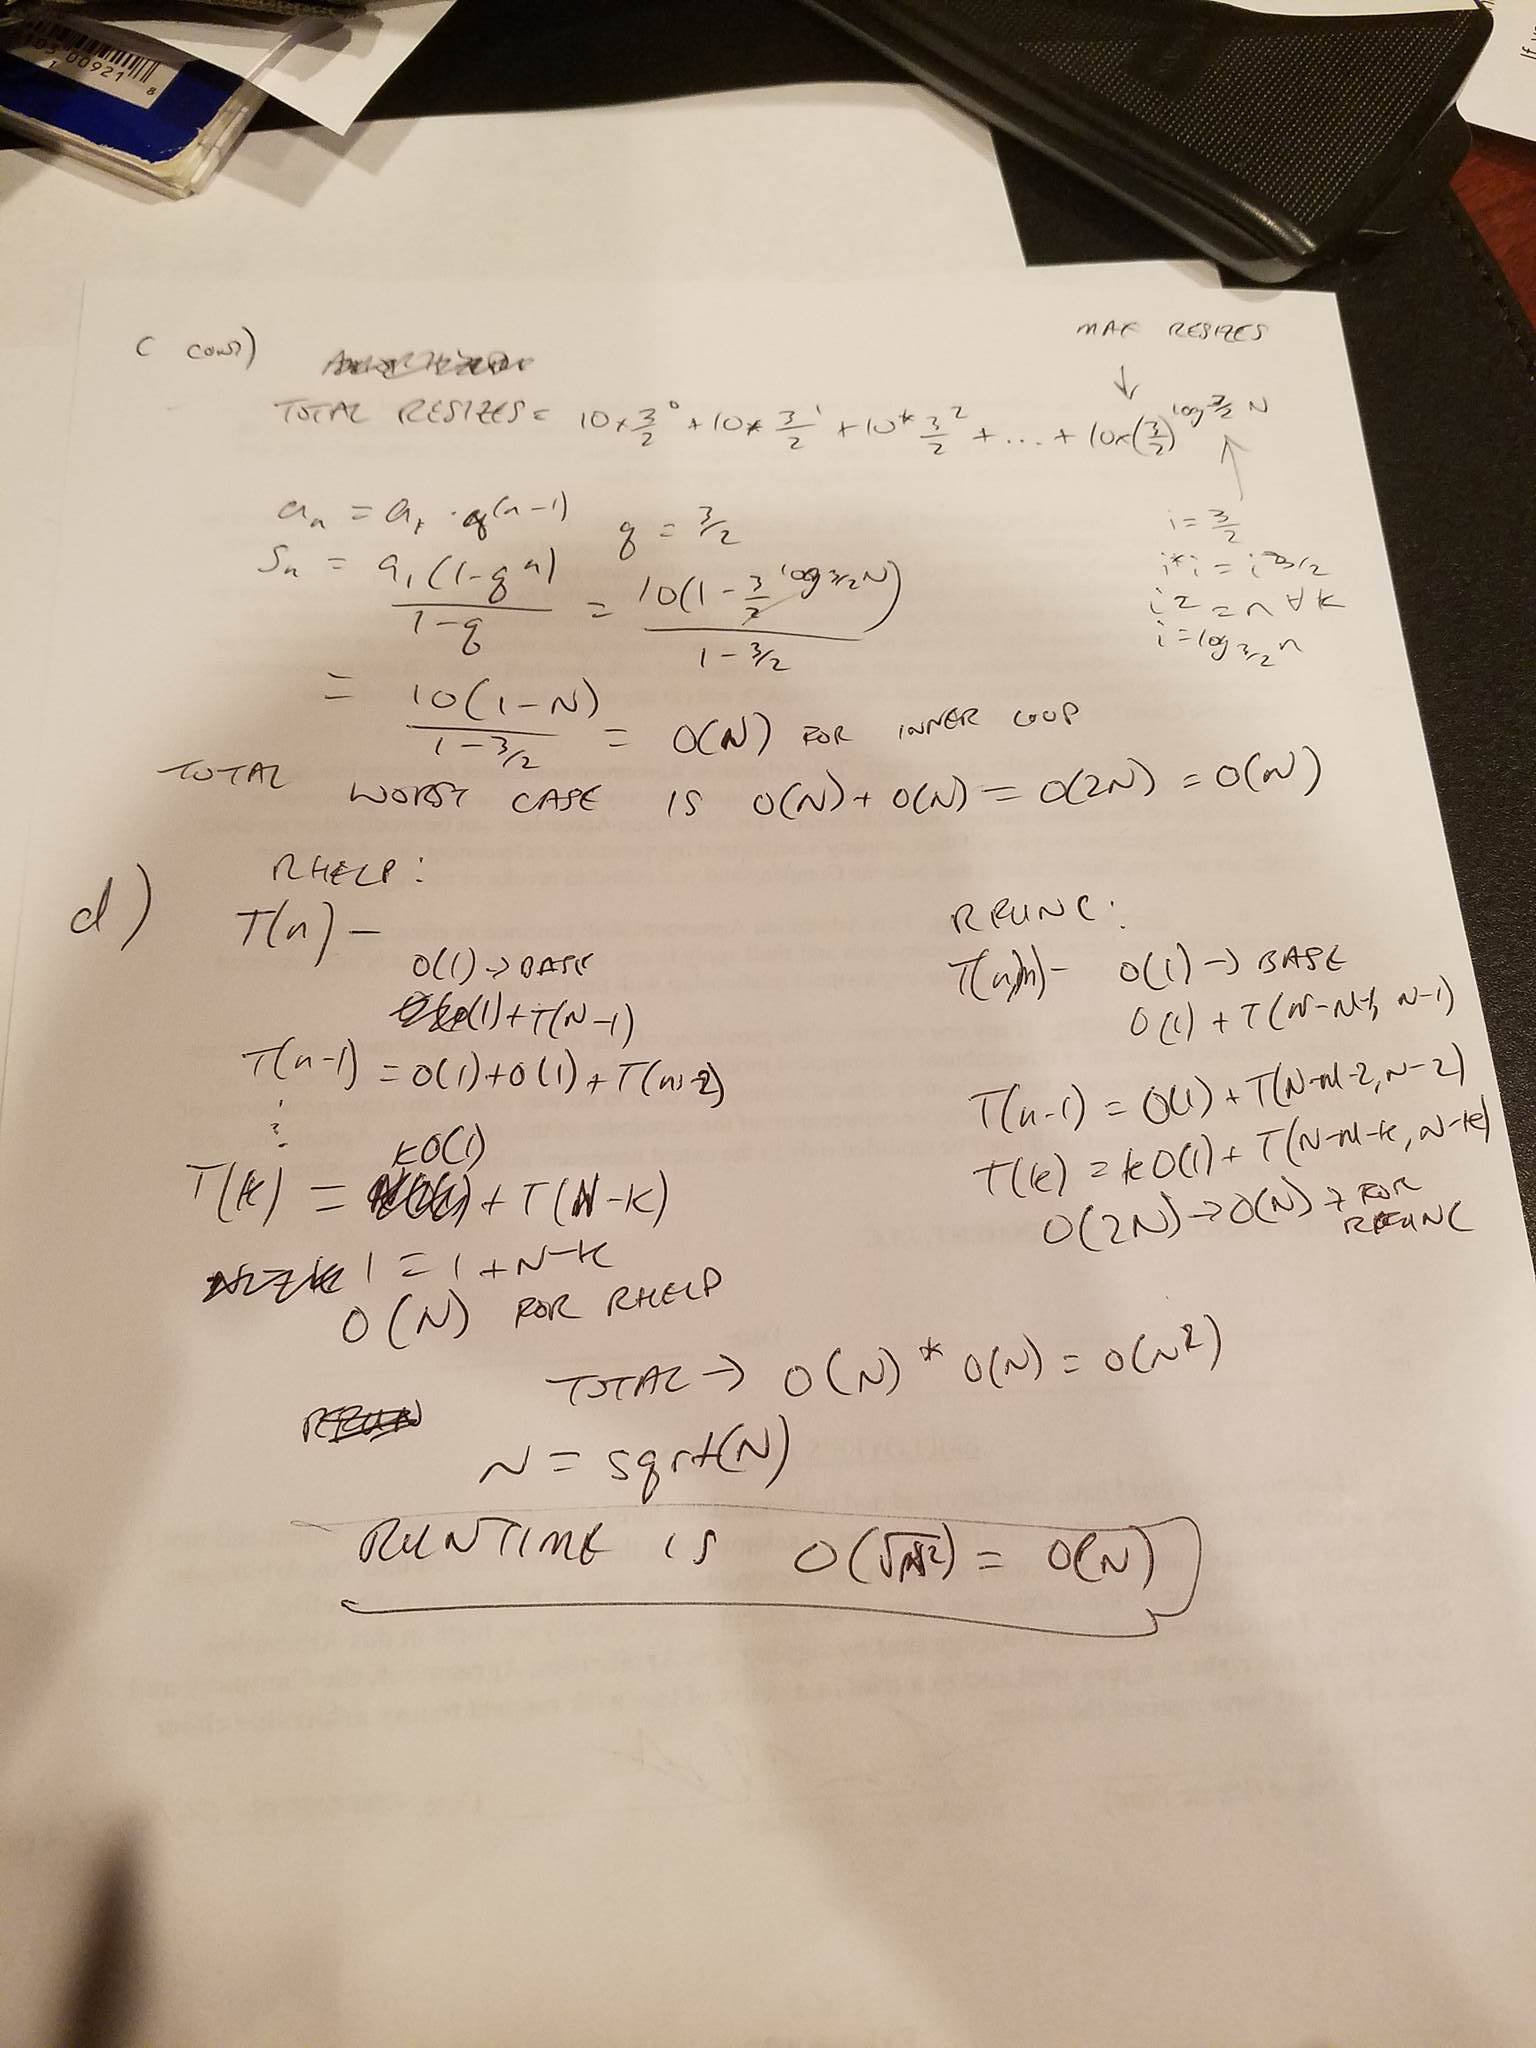 03 00921 8
If
C CONT)
MAX RESIZES
↓
TOTAL RESIZES = 10*3/2^0 + 10*3/2^1 + 10*3/2^2 + ... + 10*(3/2)^log3/2 N
a_n = a_1 · q^(n-1)
q = 3/2
S_n = a_1(1-q^n) / 1-q = 10(1-3/2^log3/2 N) / 1-3/2
= 10(1-N) / 1-3/2 = O(N) FOR INNER LOOP
i = 3/2
i*i =
i^2 = n ∀ k
i = log3/2 n
TOTAL WORST CASE IS O(N) + O(N) = O(2N) = O(N)
d)
RHELP:
T(n) -
O(1) → BASE
O(1) + T(N-1)
T(n-1) = O(1) + O(1) + T(n-2)
⋮
T(k) = kO(1) + T(N-k)
1 = 1 + N-k
O(N) FOR RHELP
RFUNC:
T(n,m) - O(1) → BASE
O(1) + T(N-M-1, N-1)
T(n-1) = O(1) + T(N-M-2, N-2)
T(k) = kO(1) + T(N-M-k, N-k)
O(2N) → O(N) → FOR RFUNC
TOTAL → O(N) * O(N) = O(N^2)
N = sqrt(N)
RUNTIME IS O(√N^2) = O(N)